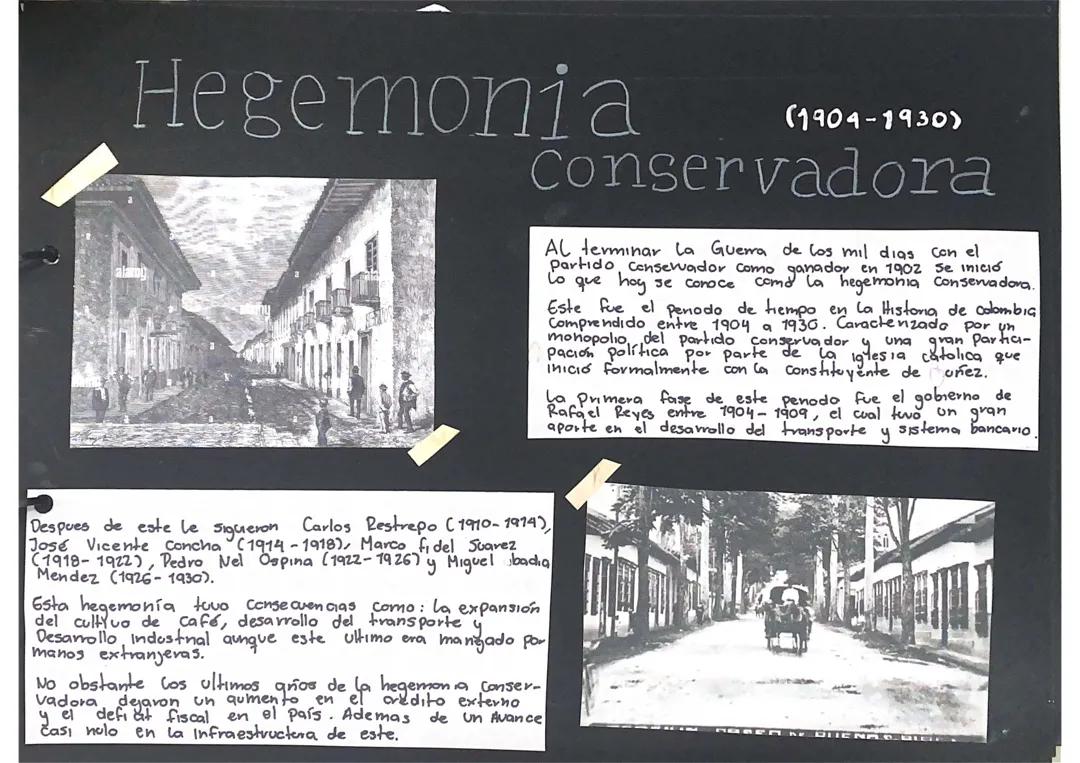 Hegemonia
(1904-1930)
conservadora
alamy
AL terminar la Guerra de los mil dias con el
partido conservador como ganador en 1902 se inició
lo que hoy se conoce como la hegemonia conservadora.
Este fue el periodo de tiempo en la Historia de colombia
comprendido entre 1904 a 1930. Caracterizado por un
monopolio del partido conservador y una gran Partici-
pación política por parte de la iglesia catolica que
inició formalmente con la constituyente de
La Primera fase de este periodo fue el gobierno de
Rafael Reyes entre 1904-1909, el cual tuvo un gran
aporte en el desarrollo del transporte y sistema bancario.
Despues de este le siguieron Carlos Restrepo (1910-1914),
José Vicente Concha (1914-1918), Marco fidel Suarez
(1918-1922), Pedro Nel Ospina (1922-1926) y Miguel badia
Mendez (1926-1930).
Esta hegemonía tuvo consecuencias como: la expansión
del cultivo de café, desarrollo del transporte y
Desarrollo Industrial aunque este ultimo era manejado por
manos extranjeras.
No obstante los ultimos años de la hegemonia conser-
vadora dejaron un aumento en el credito externo
y el deficit fiscal en el país. Ademas de un Avance
casi nulo en la infraestructura de este.
PASEO DE BUENOS